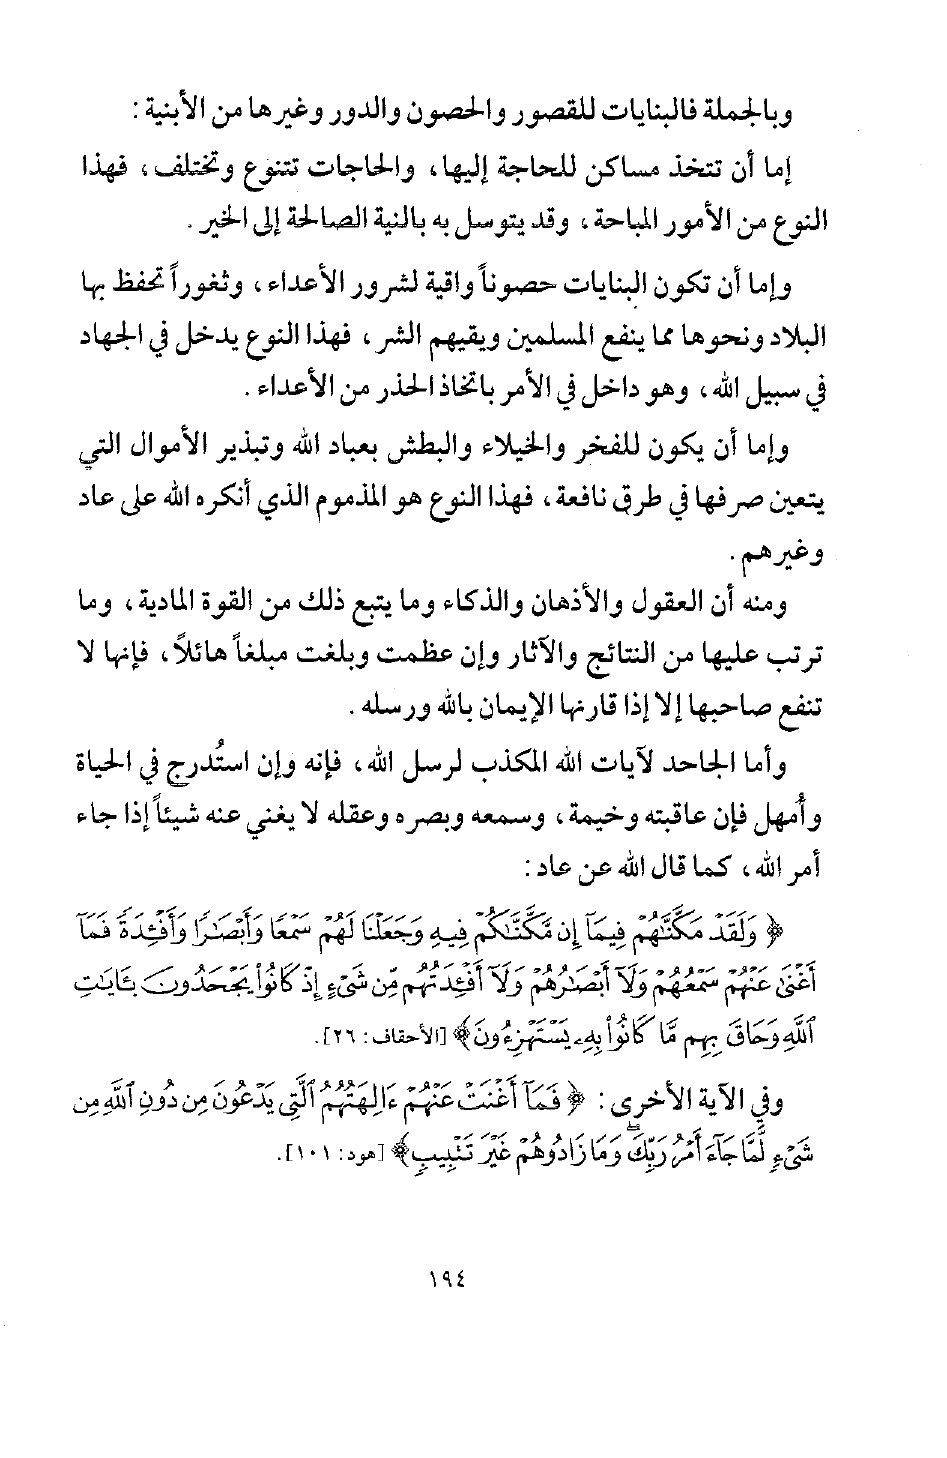 وبالجملة فالبنايات للقصور والحصون والدور وغيرها من الأبنية :
إما أن تتخذ مساكن للحاجة إليها، والحاجات تتنوع وتختلف، فهذا
النوع من الأمور المباحة، وقد يتوسل به بالنية الصالحة إلى الخير .
وإما أن تكون البنايات حصوناً واقية لشرور الأعداء، وثغوراً تحفظ بها
البلاد ونحوها مما ينفع المسلمين ويقيهم الشر، فهذا النوع يدخل في الجهاد
في سبيل الله، وهو داخل في الأمر باتخاذ الحذر من الأعداء .
وإما أن يكون للفخر والخيلاء والبطش بعباد الله وتبذير الأموال التي
يتعين صرفها في طرق نافعة، فهذا النوع هو المذموم الذي أنكره الله على عاد
وغيرهم .
ومنه أن العقول والأذهان والذكاء وما يتبع ذلك من القوة المادية، وما
ترتب عليها من النتائج والآثار وإن عظمت وبلغت مبلغاً هائلاً، فإنها لا
تنفع صاحبها إلا إذا قارنها الإيمان بالله ورسله .
وأما الجاحد لآيات الله المكذب لرسل الله، فإنه وإن استُدرج في الحياة
وأُمهل فإن عاقبته وخيمة، وسمعه وبصره وعقله لا يغني عنه شيئاً إذا جاء
أمر الله، كما قال الله عن عاد :
﴿ وَلَقَدْ مَكَّنَّٰهُمْ فِيمَآ إِن مَّكَّنَّٰكُمْ فِيهِ وَجَعَلْنَا لَهُمْ سَمْعًا وَأَبْصَٰرًا وَأَفْـِٔدَةً فَمَآ
أَغْنَىٰ عَنْهُمْ سَمْعُهُمْ وَلَآ أَبْصَٰرُهُمْ وَلَآ أَفْـِٔدَتُهُم مِّن شَىْءٍ إِذْ كَانُوا۟ يَجْحَدُونَ بِـَٔايَٰتِ
ٱللَّهِ وَحَاقَ بِهِم مَّا كَانُوا۟ بِهِۦ يَسْتَهْزِءُونَ﴾ [الأحقاف: ٢٦].
وفي الآية الأخرى : ﴿ فَمَآ أَغْنَتْ عَنْهُمْ ءَالِهَتُهُمُ ٱلَّتِى يَدْعُونَ مِن دُونِ ٱللَّهِ مِن
شَىْءٍ لَّمَّا جَآءَ أَمْرُ رَبِّكَ ۖ وَمَا زَادُوهُمْ غَيْرَ تَتْبِيبٍ﴾ [هود: ١٠١].
١٩٤